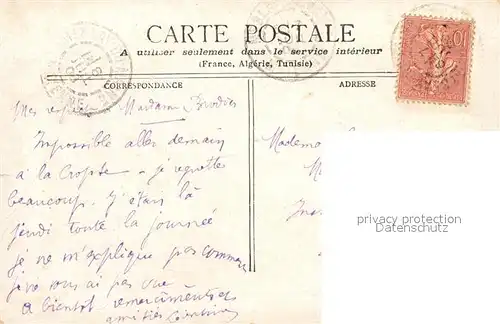 CARTE POSTALE
A utiliser seulement dans le service intérieur
(France, Algérie, Tunisie)
CORRESPONDANCE
ADRESSE
Mes Madame
Impossible aller demain
à la – je regrette
beaucoup. J'étais là
jeudi toute la journée
je ne m'explique pas commen
je ne vous ai pas vue
A bientôt remerciements et
amitiés
Mademo
privacy protection
Datenschutz